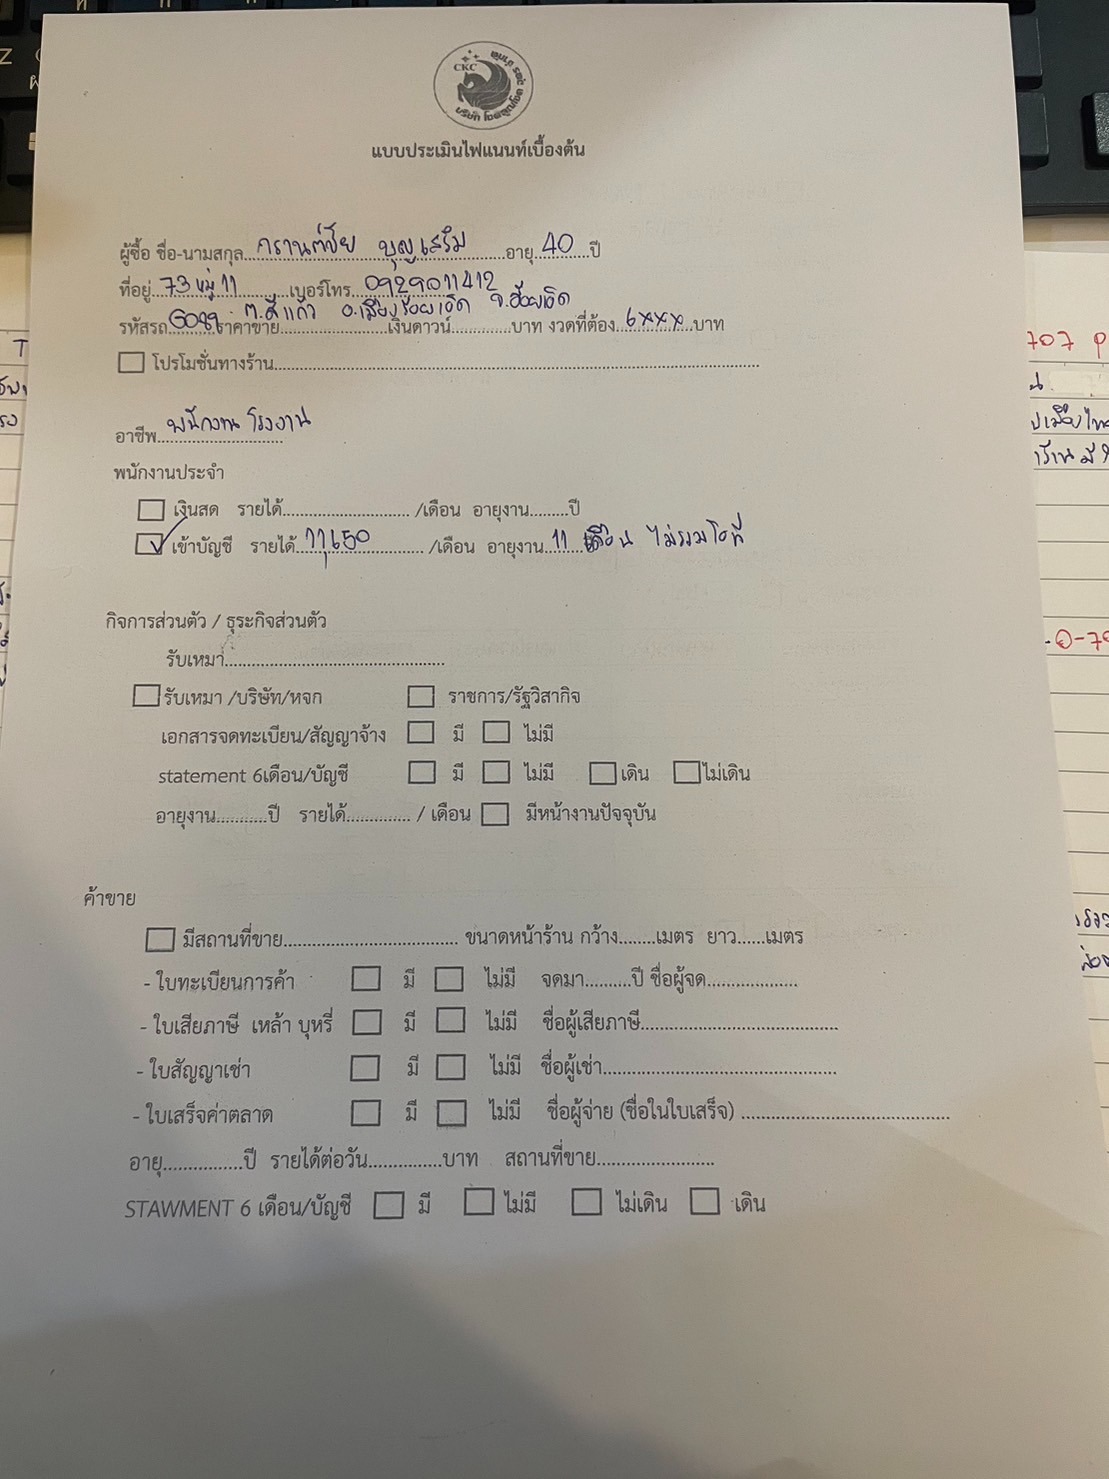 CKC
แบบประเมินไฟแนนท์เบื้องต้น
ผู้ซื้อ ชื่อ-นามสกุล กรานต์ชัย บุญเสริม อายุ 40 ปี
ที่อยู่ 73 หมู่ 11 เบอร์โทร 0929011412
ต.สีแก้ว อ.เมืองร้อยเอ็ด จ.ร้อยเอ็ด
รหัสรถ G099 ราคาขาย เงินดาวน์ บาท งวดที่ต้อง 6xxx บาท
โปรโมชั่นทางร้าน
อาชีพ พนักงาน โรงงาน
พนักงานประจำ
เงินสด รายได้ /เดือน อายุงาน ปี
เข้าบัญชี รายได้ 11,650 /เดือน อายุงาน 11 เดือน ไม่รวมโอที
กิจการส่วนตัว / ธุระกิจส่วนตัว
รับเหมา
รับเหมา /บริษัท/หจก ราชการ/รัฐวิสากิจ
เอกสารจดทะเบียน/สัญญาจ้าง มี ไม่มี
statement 6เดือน/บัญชี มี ไม่มี เดิน ไม่เดิน
อายุงาน ปี รายได้ / เดือน มีหน้างานปัจจุบัน
ค้าขาย
มีสถานที่ขาย ขนาดหน้าร้าน กว้าง เมตร ยาว เมตร
- ใบทะเบียนการค้า มี ไม่มี จดมา ปี ชื่อผู้จด
- ใบเสียภาษี เหล้า บุหรี่ มี ไม่มี ชื่อผู้เสียภาษี
- ใบสัญญาเช่า มี ไม่มี ชื่อผู้เช่า
- ใบเสร็จค่าตลาด มี ไม่มี ชื่อผู้จ่าย (ชื่อในใบเสร็จ)
อายุ ปี รายได้ต่อวัน บาท สถานที่ขาย
STAWMENT 6 เดือน/บัญชี มี ไม่มี ไม่เดิน เดิน